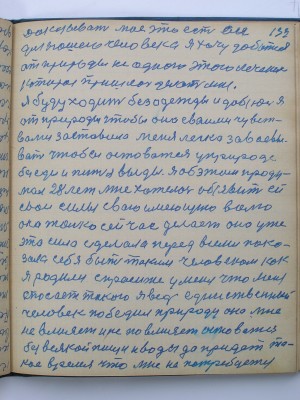 показывать мое это есть все 133
другого человека я хочу добиться
от природы не одного этого лечения
которая пришлось делать мне.
Я буду ходить без одежды и добьюсь
от природы чтобы она своими чувст-
вами заставила меня легко завоевы-
вать чтобы остаться у природе
без еды и питья воды. Я об этом проду-
мал 28 лет мне хотелось
свои силы свою имеющую волю
она только сейчас делает она уже
эта сила сделала перед всеми пока-
зала себя быть таким человеком как
я родился спросите у меня что меня
спасает такого я ведь единственный
человек победил природу она мне
не влияет и не повлияет останется
без всякой пищи и воды да придет та-
кое время что мне не потребуется